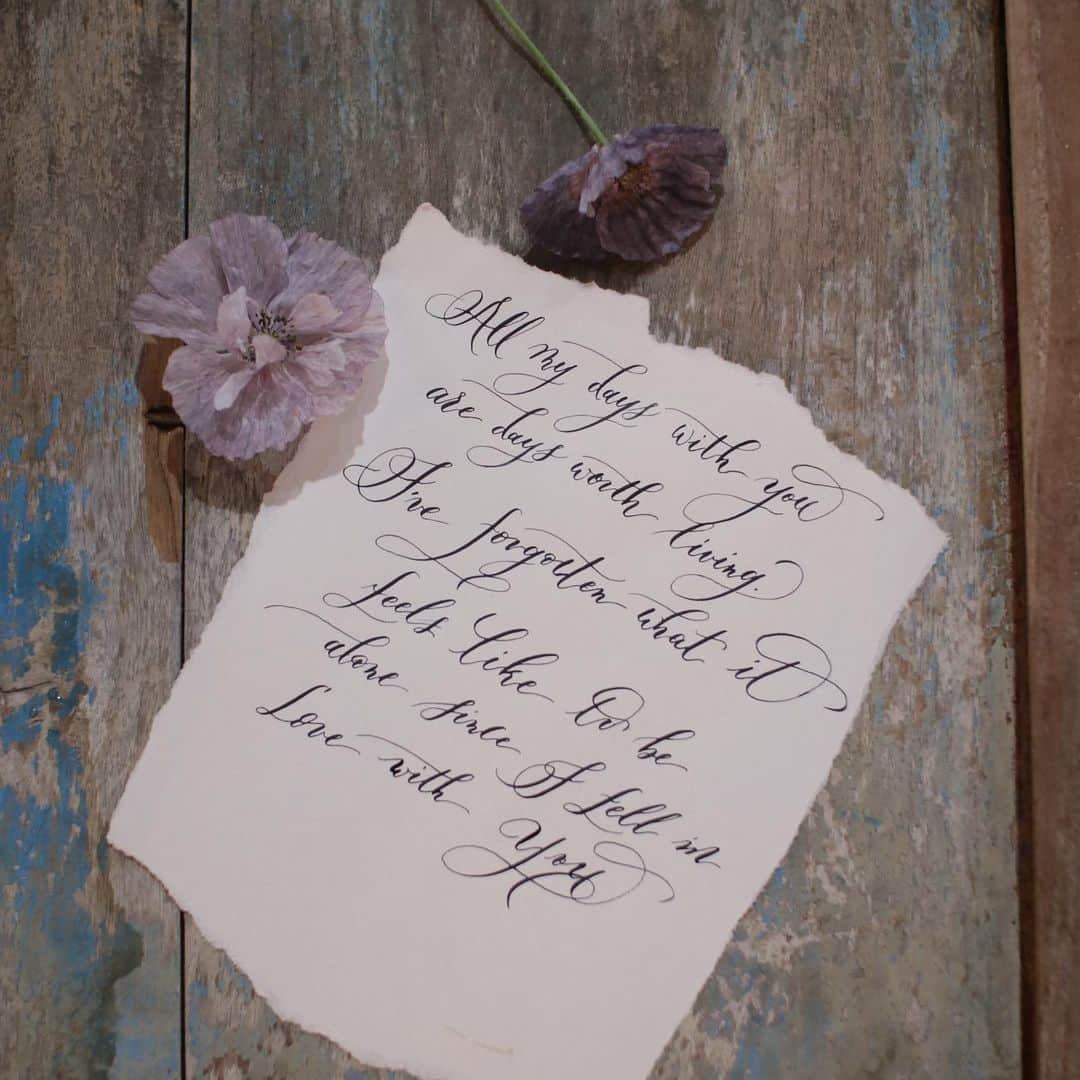 All my days with you
are days worth living.
I've forgotten what it
feels like to be
alone since I fell in
Love with You